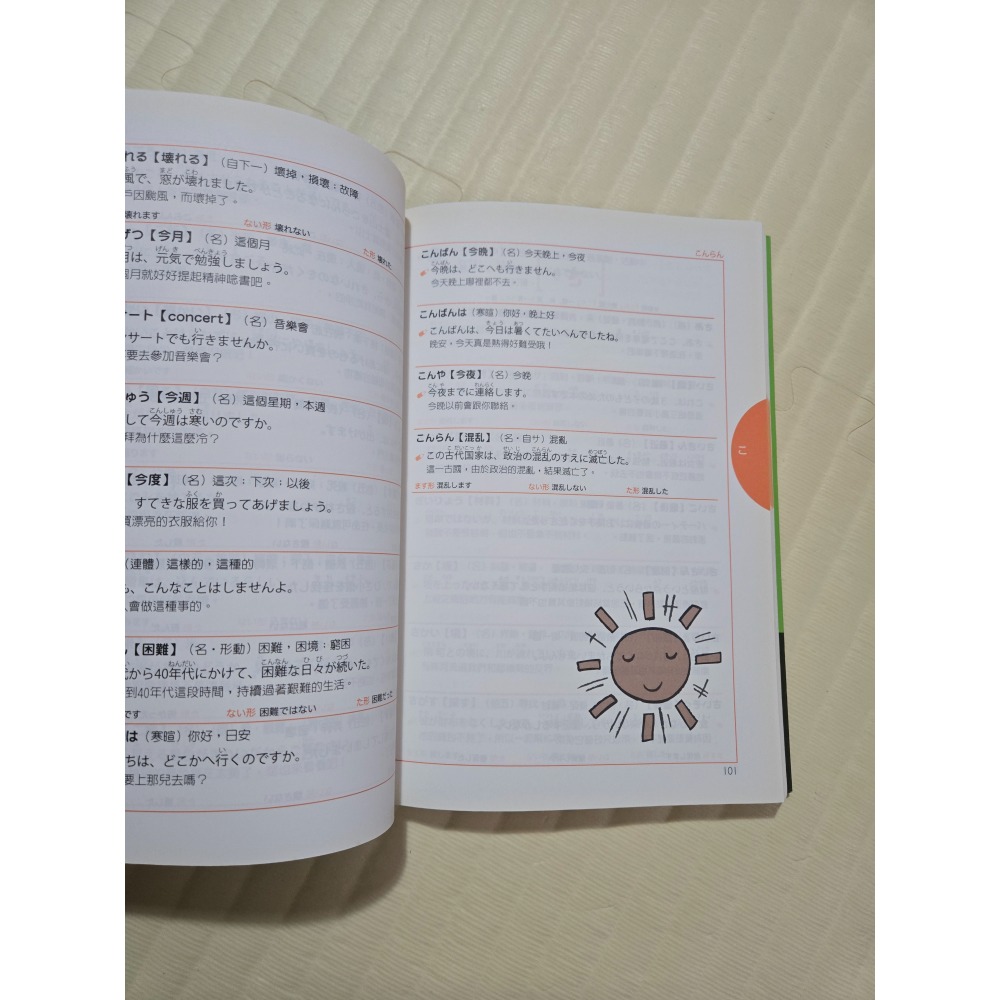 れる【壊れる】（自下一）壞掉，損壞；故障
風で、窓が壊れました。
戶因颱風，而壞掉了。
壊れます ない形 壊れない た形 壊れた
げつ【今月】（名）這個月
月は、元気で勉強しましょう。
個月就好好提起精神唸書吧。
サート【concert】（名）音樂會
ンサートでも行きませんか。
要去參加音樂會？
ゅう【今週】（名）這個星期，本週
して今週は寒いのですか。
拜為什麼這麼冷？
【今度】（名）這次；下次；以後
すてきな服を買ってあげましょう。
買漂亮的衣服給你！
（連體）這樣的，這種的
も、こんなことはしませんよ。
會做這種事的。
【困難】（名・形動）困難，困境；窮困
代から40年代にかけて、困難な日々が続いた。
到40年代這段時間，持續過著艱難的生活。
です ない形 困難ではない た形 困難だった
は（寒暄）你好，日安
ちは、どこかへ行くのですか。
要上那兒去嗎？
こんらん
こんばん【今晩】（名）今天晚上，今夜
今晩は、どこへも行きません。
今天晚上哪裡都不去。
こんばんは（寒暄）你好，晚上好
こんばんは、今日は暑くてたいへんでしたね。
晚安，今天真是熱得好難受哦！
こんや【今夜】（名）今晚
今夜までに連絡します。
今晚以前會跟你聯絡。
こんらん【混乱】（名・自サ）混亂
この古代国家は、政治の混乱のすえに滅亡した。
這一古國，由於政治的混亂，結果滅亡了。
ます形 混乱します ない形 混乱しない た形 混乱した
こ
101